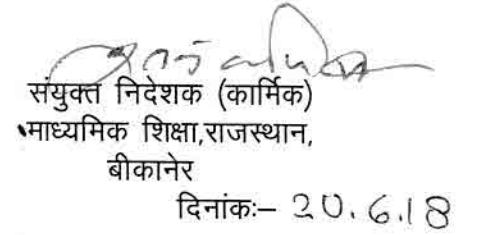 संयुक्त निदेशक (कार्मिक)
माध्यमिक शिक्षा,राजस्थान,
बीकानेर
दिनांकः– 20.6.18